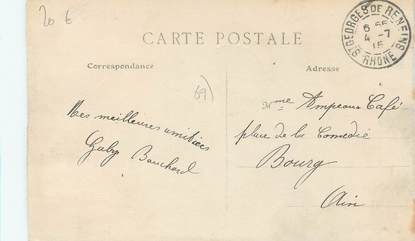 20 6
CARTE POSTALE
Correspondance
Adresse
ST GEORGES DE RENEINS
4 -7
RHONE
69)
Mes meilleures amitiés
Gaby Bouchard
Mme Ampeaux Café
place de la Comédie
Bourg
Ain